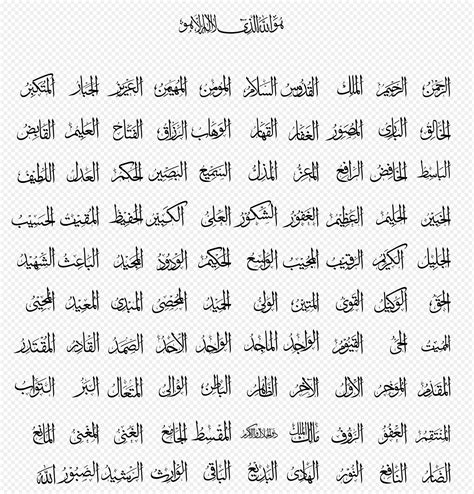 هو الله الذي لا اله الا هو
الرحمن الرحيم الملك القدوس السلام المومن المهيمن العزيز الجبار المتكبر
الخالق الباري المصور الغفار القهار الوهاب الرزاق الفتاح العليم القابض
الباسط الخافض الرافع المعز المذل السميع البصير الحكم العدل اللطيف
الخبير الحليم العظيم الغفور الشكور العلي الكبير الحفيظ المقيت الحسيب
الجليل الكريم الرقيب المجيب الواسع الحكيم الودود المجيد الباعث الشهيد
الحق الوكيل القوي المتين الولي الحميد المحصي المبدي المعيد المحيي
المميت الحي القيوم الواجد الماجد الواحد الاحد الصمد القادر المقتدر
المقدم الموخر الاول الاخر الظاهر الباطن الوالي المتعال البر التواب
المنتقم العفو الروف مالك الملك ذو الجلال والاكرام المقسط الجامع الغني المغني المانع
الضار النافع النور الهادي البديع الباقي الوارث الرشيد الصبور الله